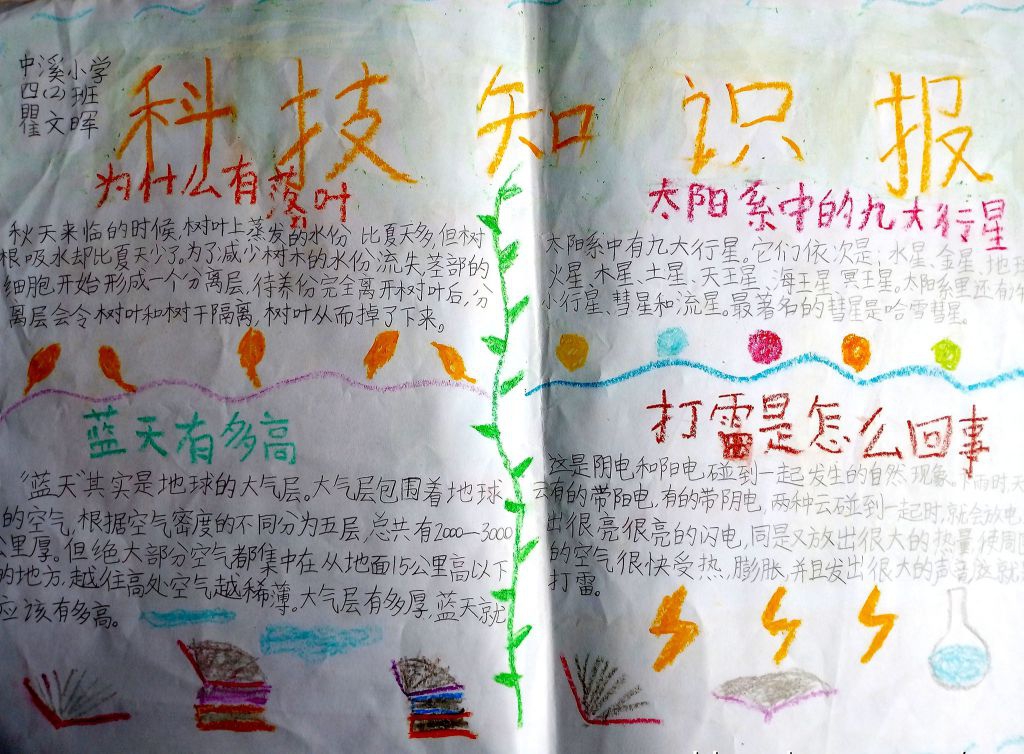 中溪小学
四(2)班
瞿文晖
科技知识报
为什么有落叶
秋天来临的时候,树叶上蒸发的水份 比夏天多,但树
根吸水却比夏天少了。为了减少树木的水份流失,茎部的
细胞开始形成一个分离层,待养份完全离开树叶后,分
离层会令树叶和树干隔离,树叶从而掉了下来。
太阳系中的九大行星
太阳系中有九大行星。它们依次是:水星、金星、地球
火星、木星、土星、天王星、海王星、冥王星。太阳系里还有许
小行星、彗星和流星。最著名的彗星是哈雪彗星。
蓝天有多高
“蓝天”其实是地球的大气层。大气层包围着地球
的空气,根据空气密度的不同分为五层,总共有2000—3000
公里厚。但绝大部分空气都集中在从地面15公里高以下
的地方,越往高处空气越稀薄。大气层有多厚,蓝天就
应该有多高。
打雷是怎么回事
这是阴电和阳电碰到一起发生的自然现象。下雨时,天
云有的带阳电,有的带阴电,两种云碰到一起时,就会放电,
出很亮很亮的闪电,同是又放出很大的热量,使周围
的空气很快受热,膨胀,并且发出很大的声音,这就
打雷。